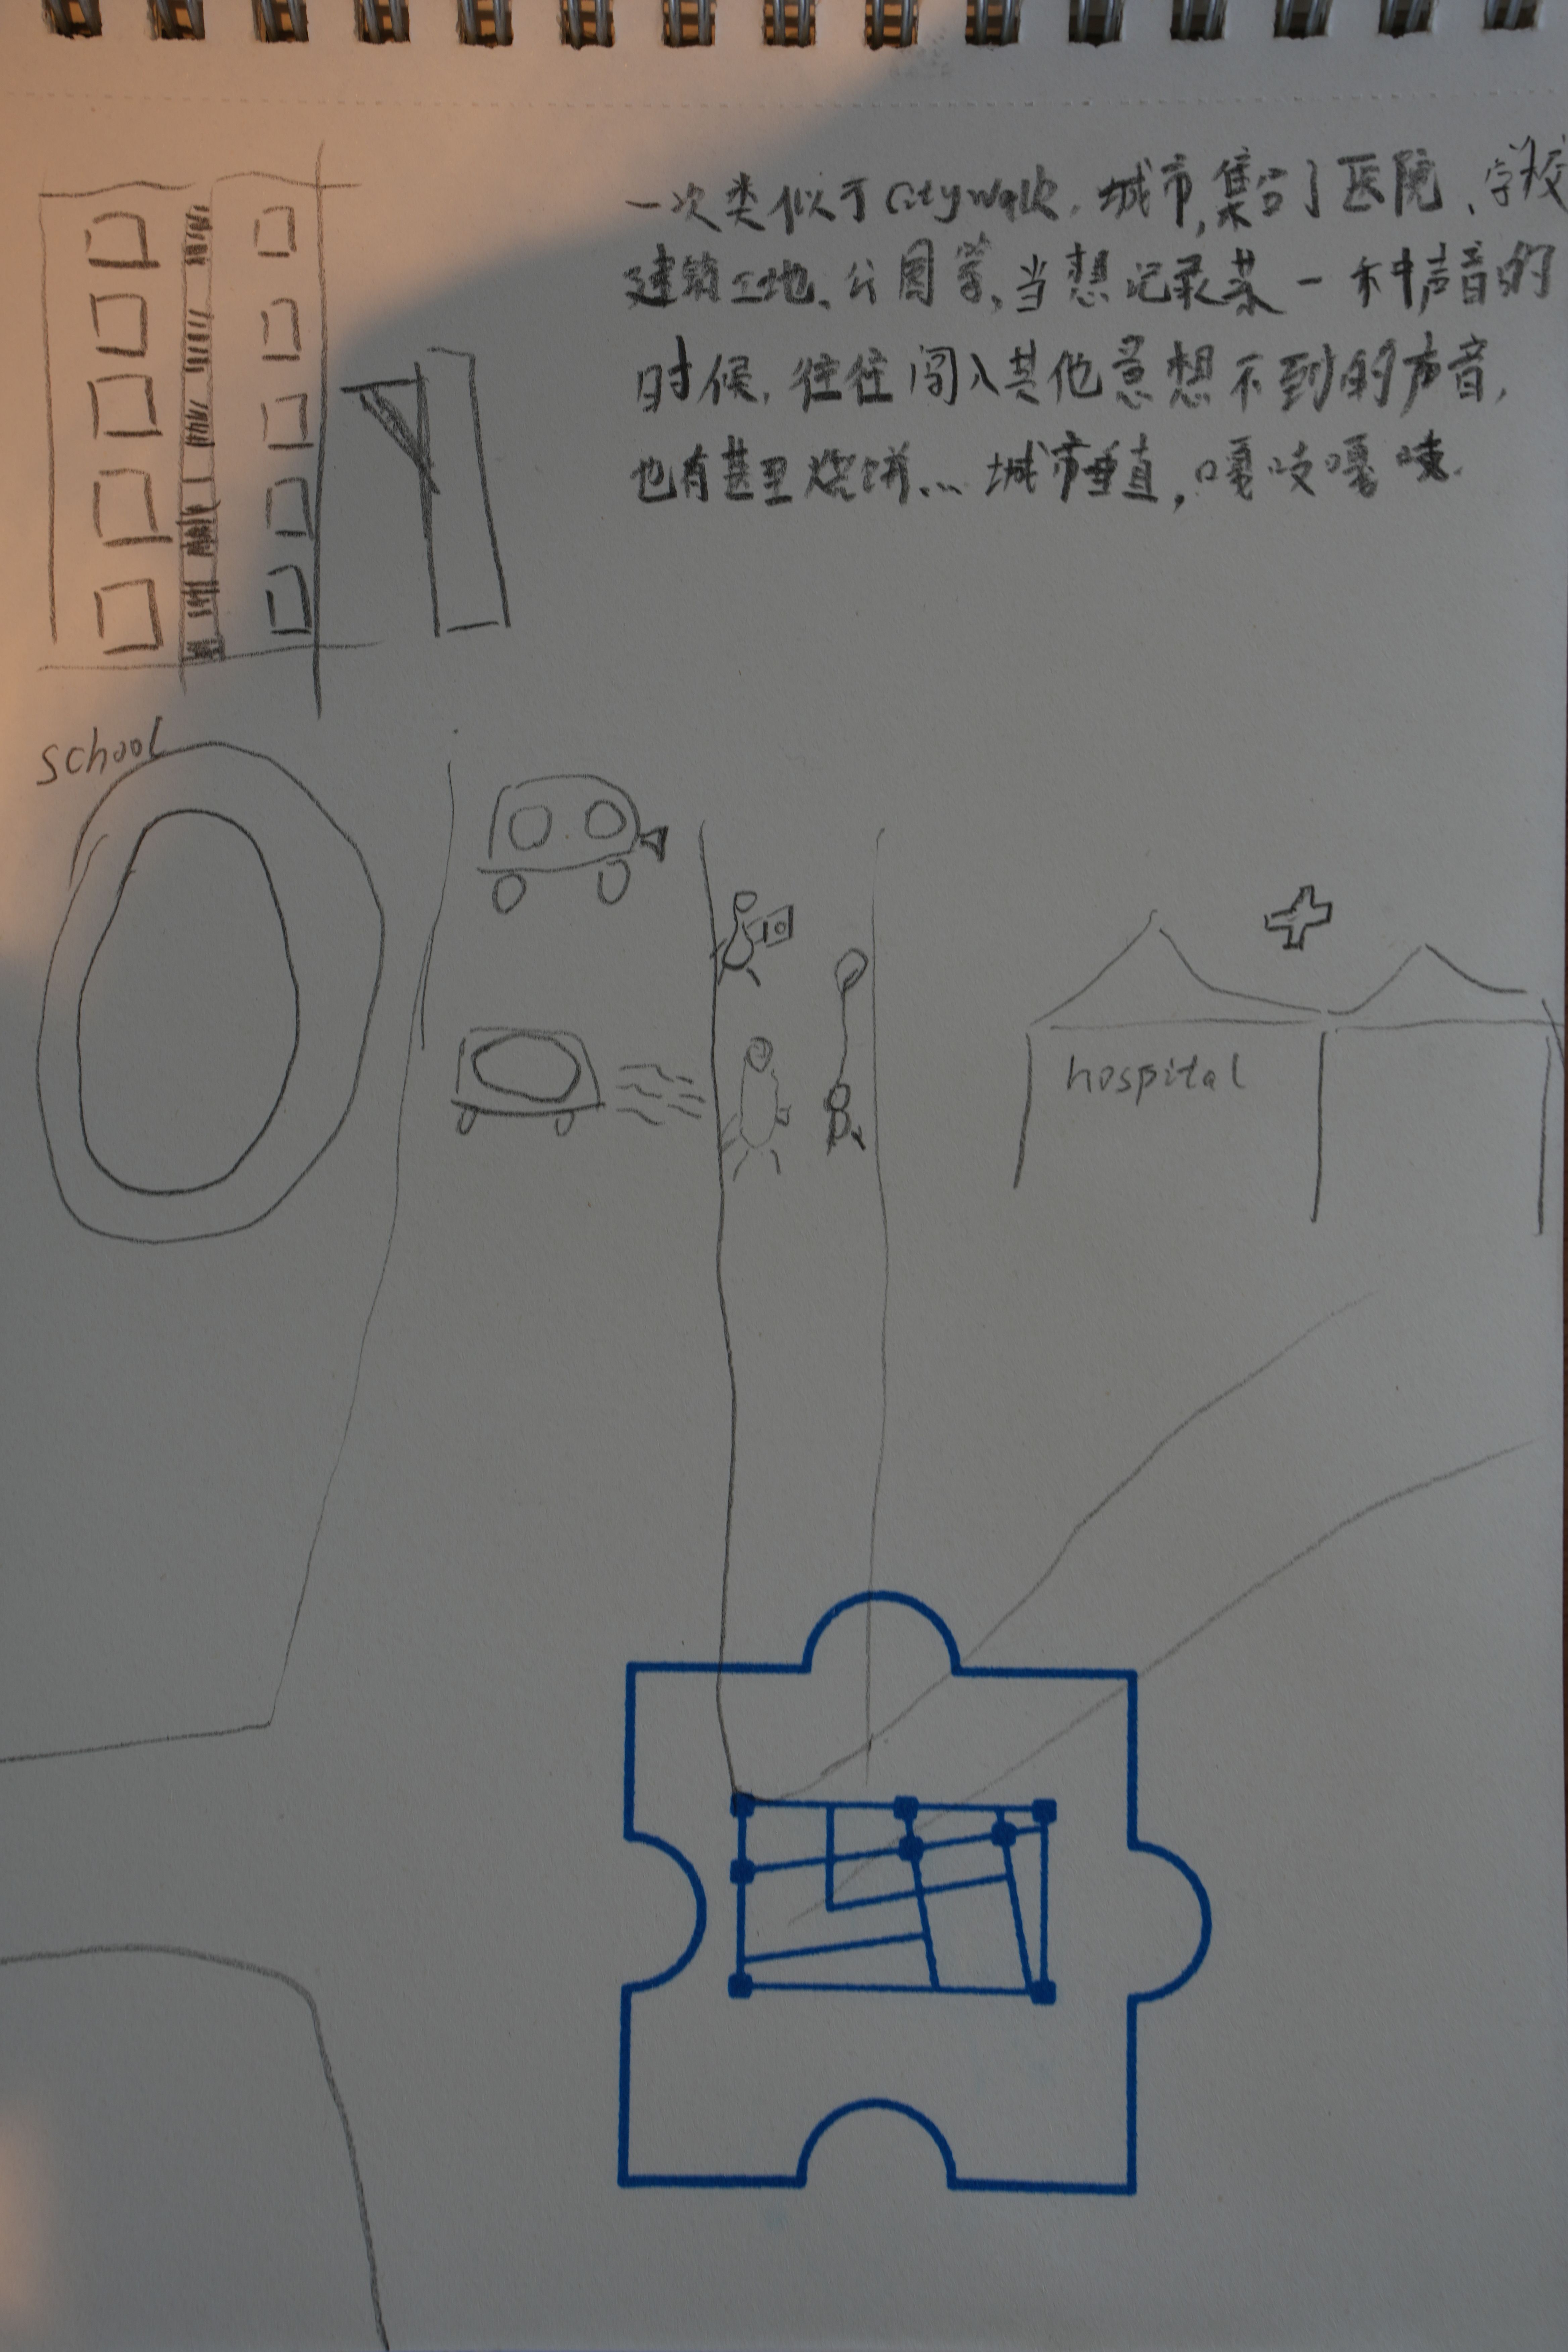 一次类似于Citywalk,城市,集合了医院、学校
建筑工地、公园等,当想记录某一种声音的
时候,往往闯入其他意想不到的声音,
也有甚里烧饼...城市垂直,嘎吱嘎吱.
school
hospital